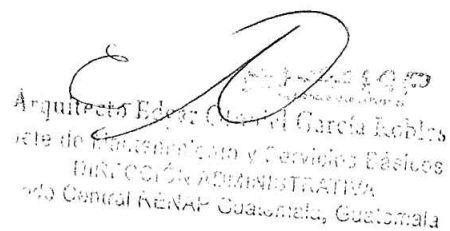 Arquitecto Edgar García Robles
Mantenimiento y Servicios Básicos
DIRECCIÓN ADMINISTRATIVA
Central RENAP Guatemala, Guatemala